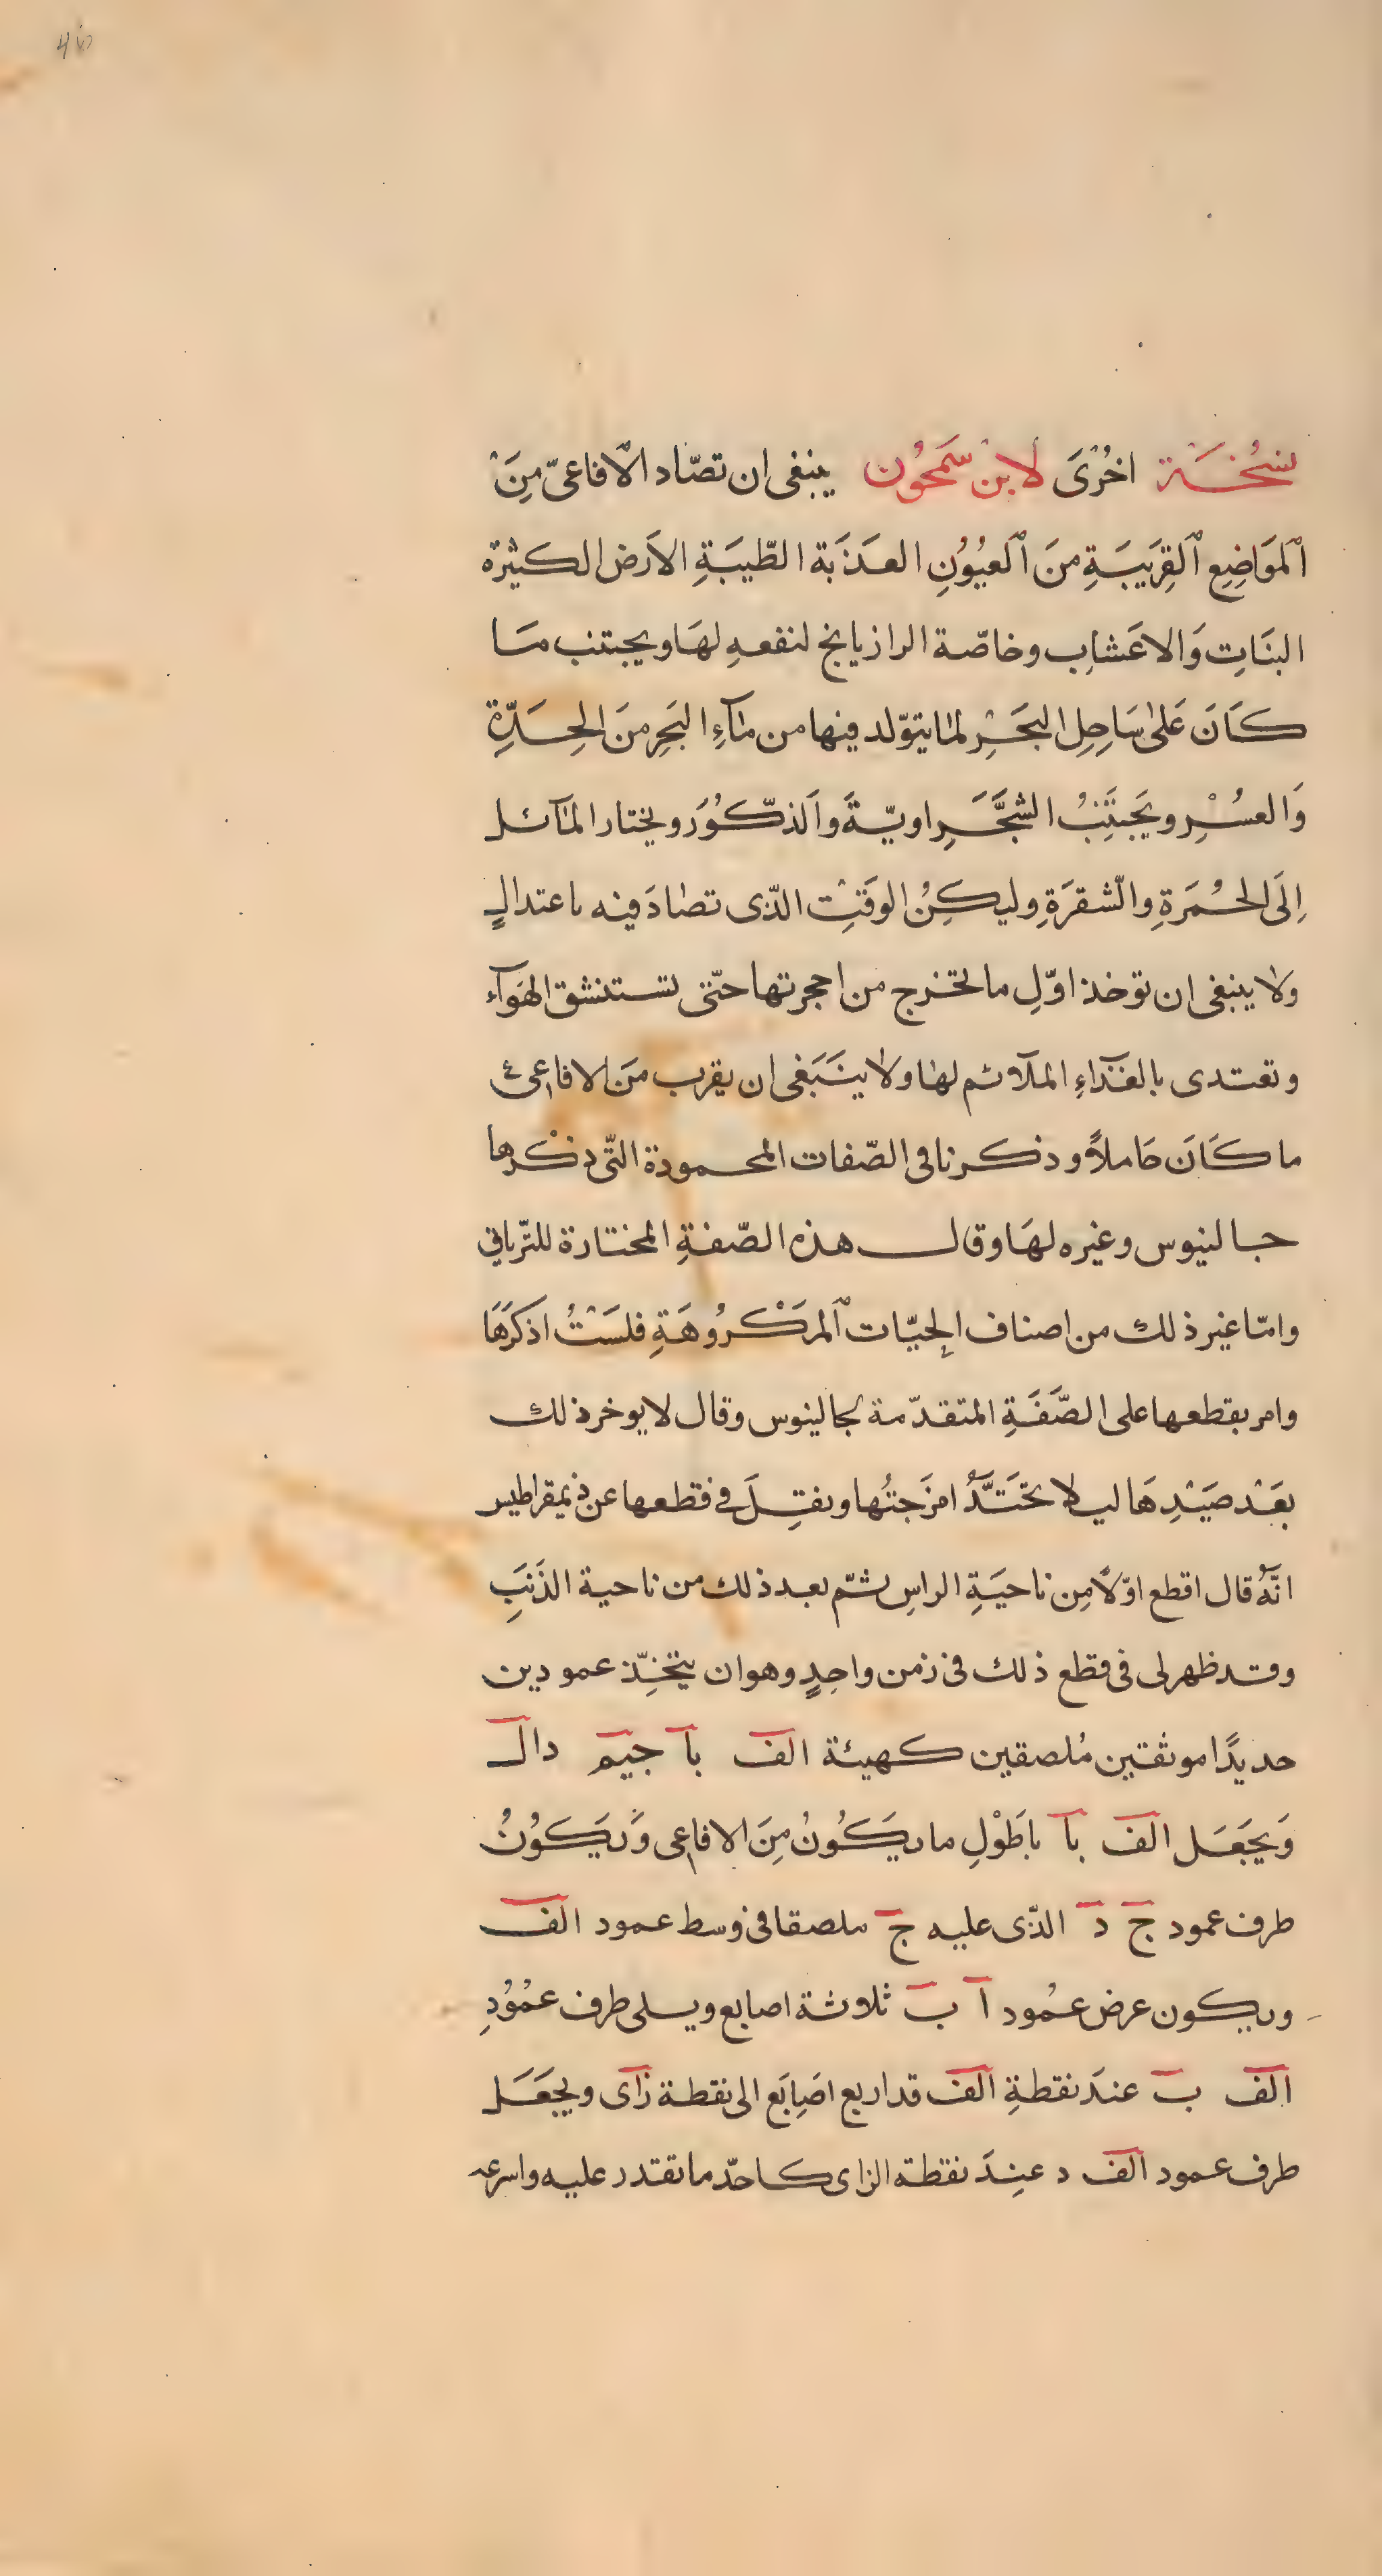 نسُخَة اخُرْىَ لابْن سَمَحُون ينبغى ان تصّاد الافاعىّ مِنَ
اَلمَوَاضِيِعِ اَلقِرَيبَةِ منَ اَلعيُوُنِ العَذَبَة الطّيبَةِ الاَرض الكثيرة
البنَاتِ وَالاعَشابِ وخاصّة الرازيانج لنفعهِ لهَا ويجتنب مَا
كَانَ عَلىٰ سَاحِلِ البحَرِ لما يتوّلد فيها من مآءِ البَحِر منَ الحِدّةِ
وَالعسُرِ ويَجتَنِبُ الشجَّرِاويّةَ واَلذّكوُرَ ويختار المآئل
اِلَى الحُمَرةِ والشّقرَةِ وليكنُ الوَقتِ الذّى تصٰادَ فيه باعتدالٍ
ولا ينبغى ان توخذ اوّلِ ما تخرج من احجرتها حتّى تستنشق الهَوآء
وتعتدى بالغذآءِ الملآئم لهٰا ولا ينَبَغى ان يقرب منَ الافاعى
ما كَانَ حَاملاً وذكرنا فى الصّفات المحمودة التّى ذكْرها
جالنيوس وغيره لهَا وقال هذه الصّفةِ المختارة للتّرياق
وامّا غير ذلك من اصناف الحيّات اَلمرَكْرُوهَةِ فلسَتُ اذكرَهَا
وامر بقطعها على الصَّفَةِ المتقدّمة لجالينوس وقال لا يوخر ذلك
بعَدْ صَيْدِهَا ليلا تحَتَدَّ امزَجتُها ونقِلَ فى قطعها عن ذيمقراطيس
انَّهُ قال اقطع اوّلاً مِن ناحيَةِ الراسِ ثمّ بعد ذلك من ناحية الذَنبَِ
وقد ظهر لى فى قطع ذلك فى زمن واحِدٍ وهو ان يتّخِذ عمودين
حديدًا موثقتين مُلصقين كهيئة الف با جيم دال
وَيجَعَل الف با باطَوْلِ ما يكَُونُ مِنَ الافاعِى وَيكَوُنُ
طرف عمود ج د الذّى عليه ج ملصقا فى وسط عمود الف
ويكون عرض عمُود ا ب ثلاثة اصابع ويلى طرف عمُوُدِ
الف ب عندَ نقطةِ الف قد اربع اصَابَع الى نقطة زاى ويجعَل
طرف عمود الف د عنِدَ نقطة الزاى كاحدّ ما تقدر عليه واسرعه